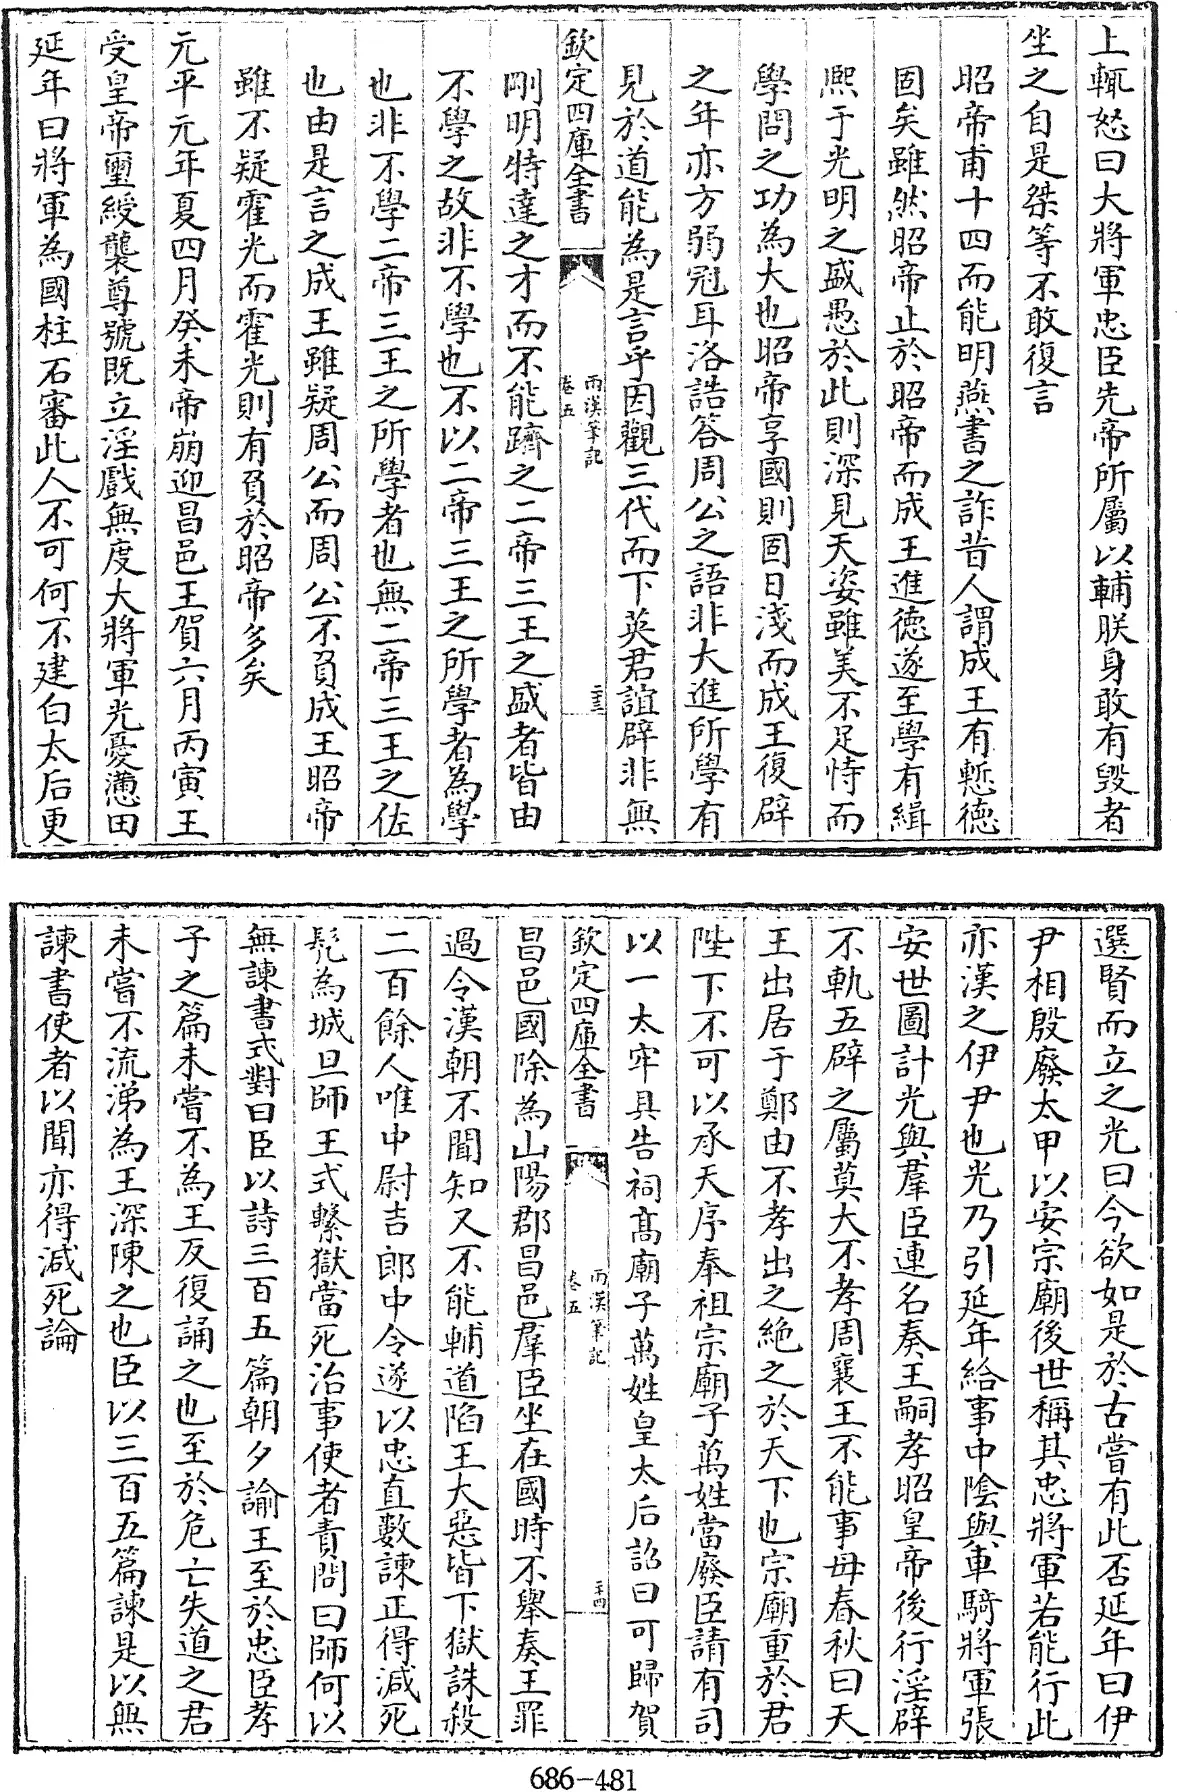 上輒怒曰大將軍忠臣先帝所屬以輔朕身敢有毀者
坐之自是桀等不敢復言
昭帝甫十四而能明燕書之詐昔人謂成王有慙德
固矣雖然昭帝止於昭帝而成王進德遂至學有緝
熈于光明之盛愚於此則深見天姿雖美不足恃而
學問之功為大也昭帝享國則固日淺而成王復辟
之年亦方弱冠耳洛誥答周公之語非大進所學有
見於道能為是言乎因觀三代而下英君誼辟非無
欽定四庫全書
兩漢筆記
卷五
二十三
剛明特達之才而不能躋之二帝三王之盛者皆由
不學之故非不學也不以二帝三王之所學者為學
也非不學二帝三王之所學者也無二帝三王之佐
也由是言之成王雖疑周公而周公不負成王昭帝
雖不疑霍光而霍光則有負於昭帝多矣
元平元年夏四月癸未帝崩迎昌邑王賀六月丙寅王
受皇帝璽綬襲尊號既立淫戲無度大將軍光憂懣田
延年曰將軍為國柱石審此人不可何不建白太后更
選賢而立之光曰今欲如是於古嘗有此否延年曰伊
尹相殷廢太甲以安宗廟後世稱其忠將軍若能行此
亦漢之伊尹也光乃引延年給事中陰與車騎將軍張
安世圖計光與羣臣連名奏王嗣孝昭皇帝後行淫辟
不軌五辟之屬莫大不孝周襄王不能事母春秋曰天
王出居于鄭由不孝出之絶之於天下也宗廟重於君
陛下不可以承天序奉祖宗廟子萬姓當廢臣請有司
以一太牢具告祠髙廟子萬姓皇太后詔曰可歸賀
欽定四庫全書
兩漢筆記
卷五
二十四
昌邑國除為山陽郡昌邑羣臣坐在國時不舉奏王罪
過令漢朝不聞知又不能輔道陷王大惡皆下獄誅殺
二百餘人唯中尉吉郎中令遂以忠直數諫正得減死
髠為城旦師王式繫獄當死治事使者責問曰師何以
無諫書式對曰臣以詩三百五篇朝夕諭王至於忠臣孝
子之篇未嘗不為王反復誦之也至於危亡失道之君
未嘗不流涕為王深陳之也臣以三百五篇諫是以無
諫書使者以聞亦得減死論
686-481